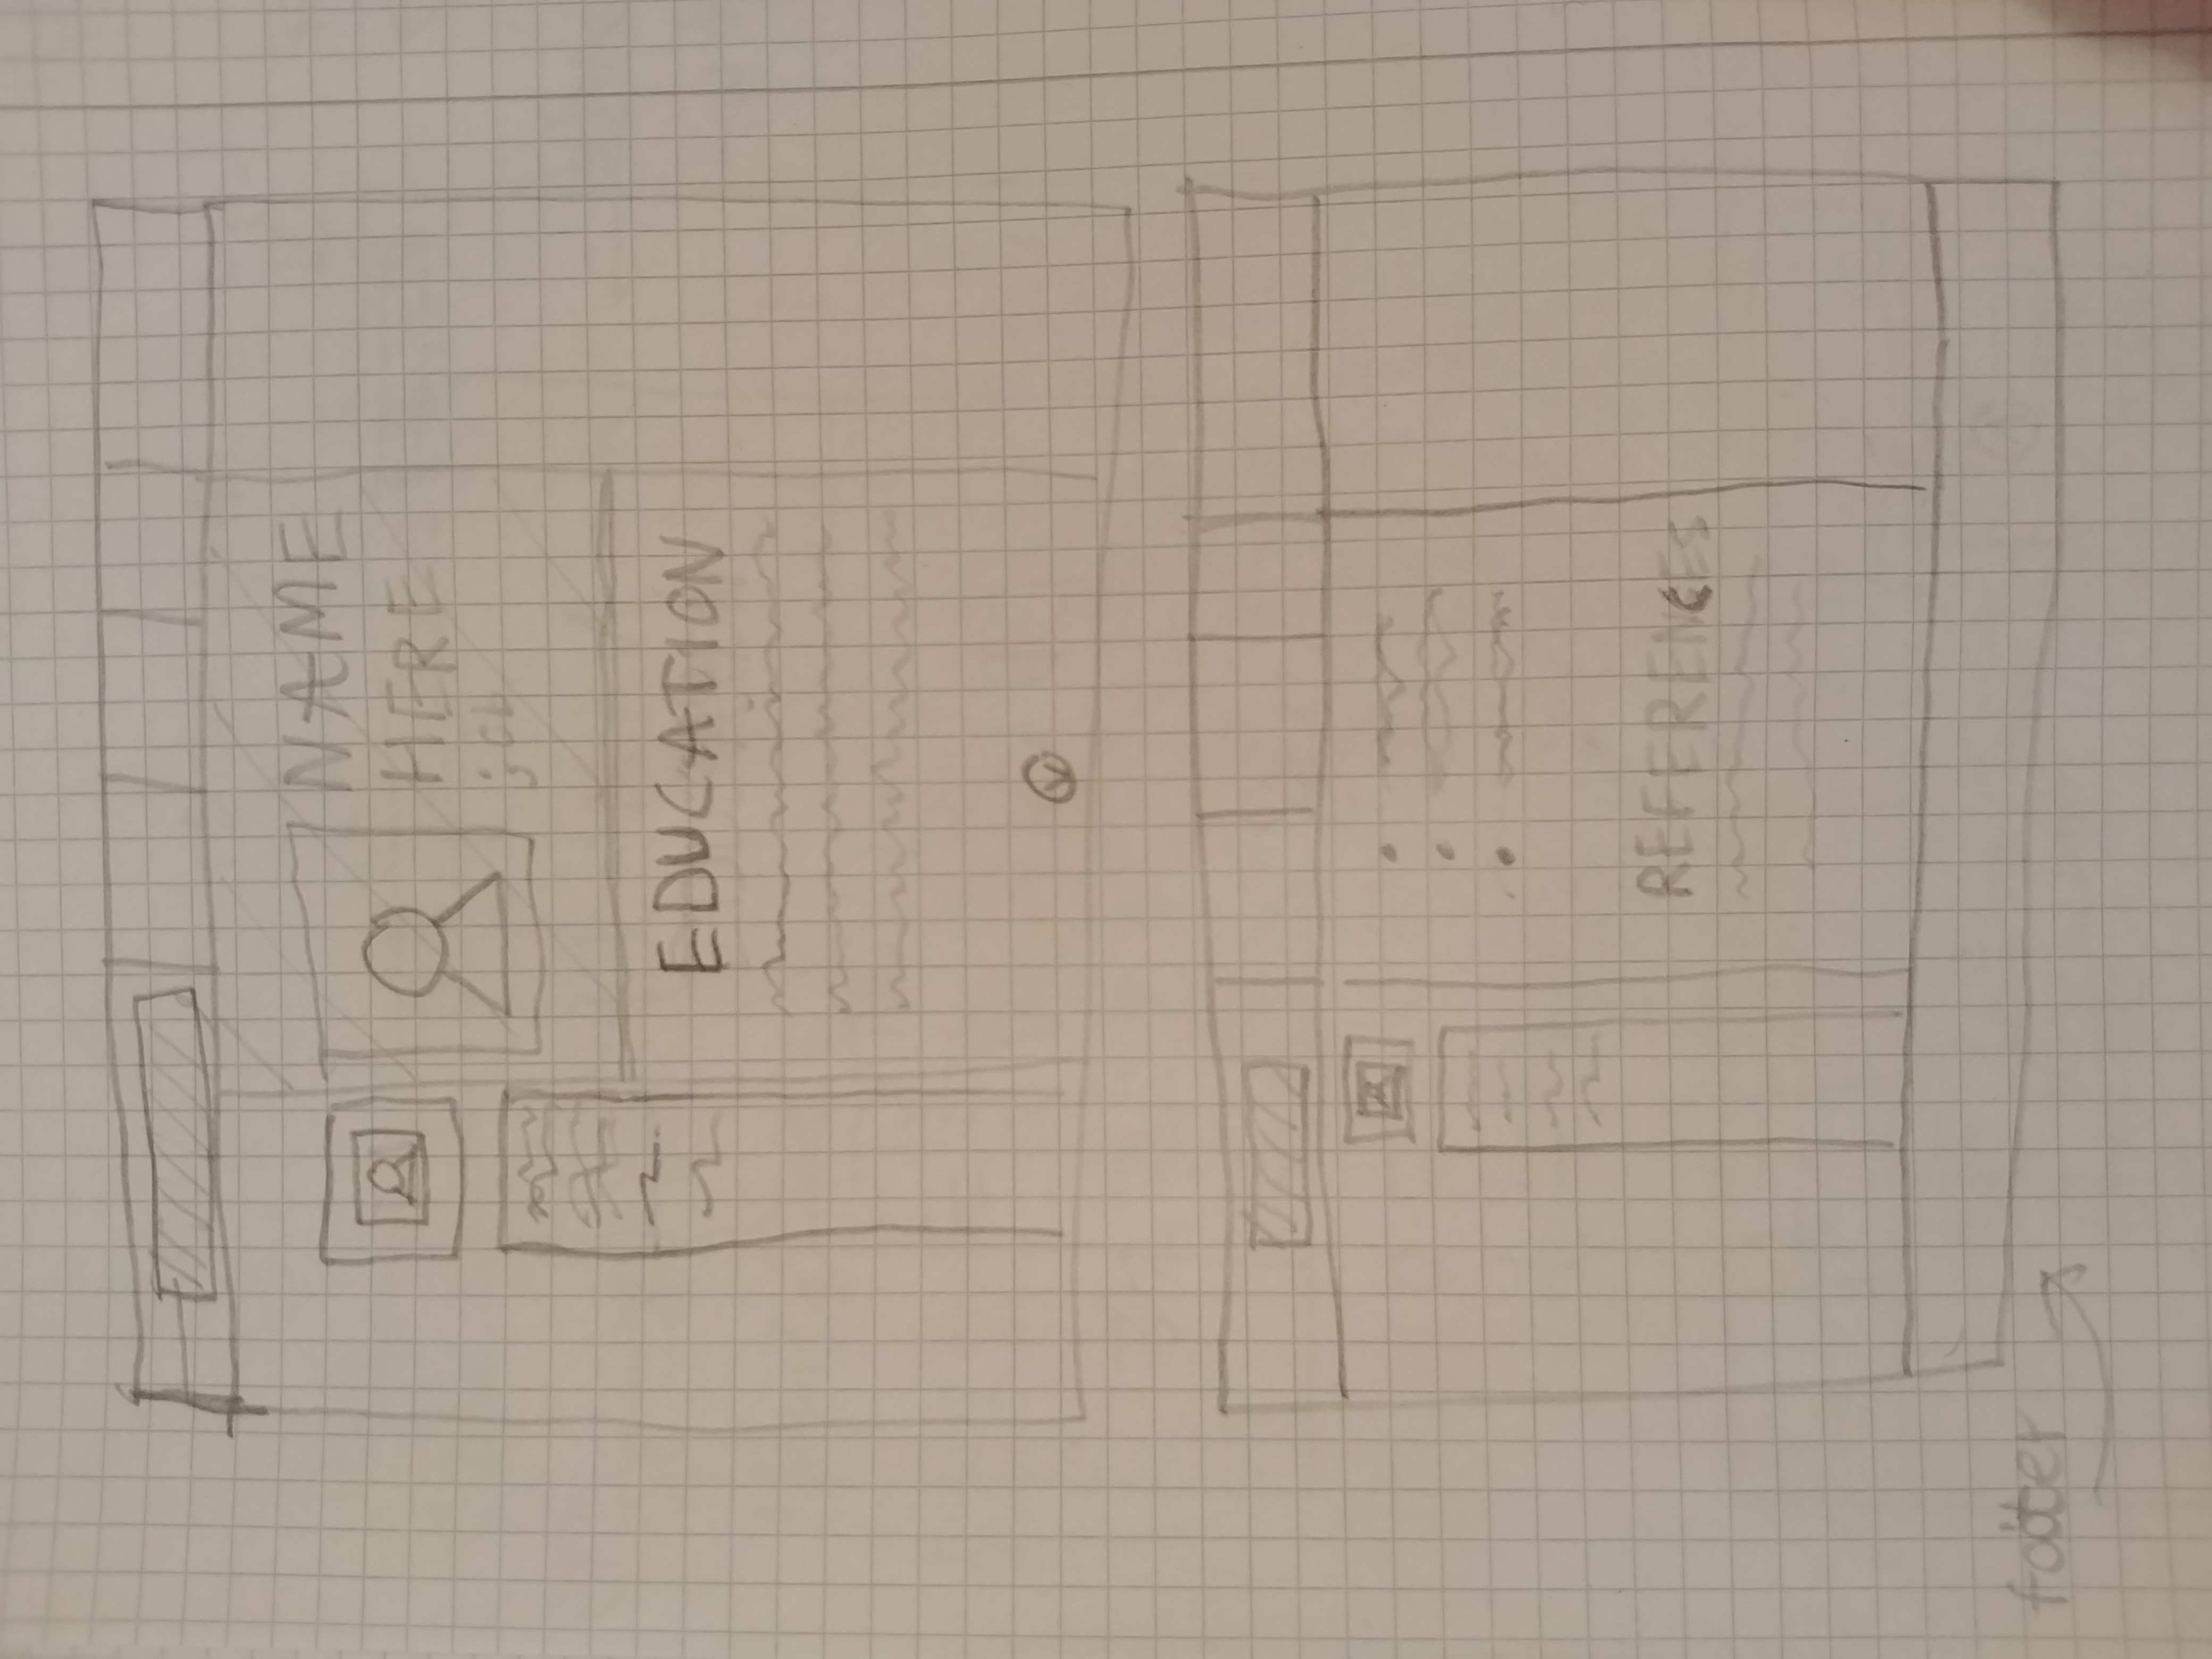 NAME
HERE
job
EDUCATION
REFERENCES
footer